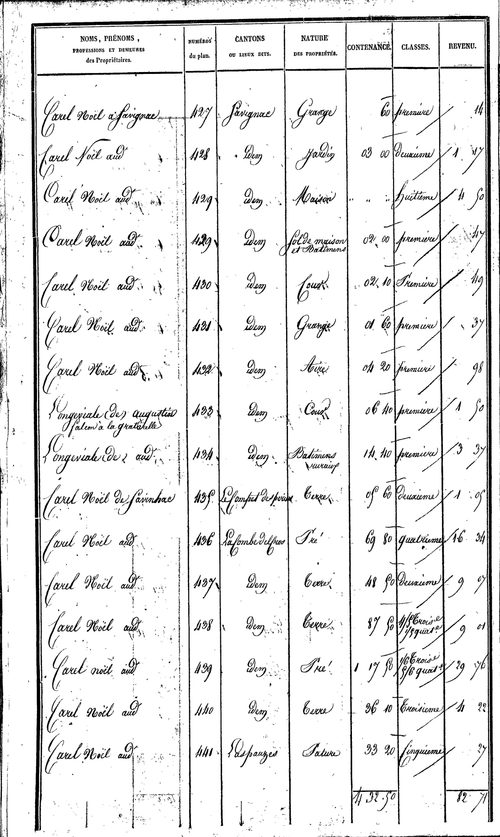 NOMS, PRÉNOMS, PROFESSIONS ET DEMEURES des Propriétaires. NUMÉROS du plan. CANTONS OU LIEUX DITS. NATURE DES PROPRIÉTÉS. CONTENANCE. CLASSES. REVENU.
Carel Noël à Savignac 427 Savignac Grange 60 première 14
Carel Noël aud 428 idem Jardin 03 00 Deuxieme 1 17
Carel Noël aud 429 idem Maison " " huitieme 4 50
Carel Noël aud 429 idem sol de maison et Batimens 02 00 premiere 47
Carel Noël aud 430 idem Cour 02 10 Premiere 49
Carel Noël aud 431 idem Grange 01 60 premiere 37
Carel Noël aud 432 idem Aire 04 20 premiere 98
Longeviale (de) augustin 433 idem Cour 06 40 premiere 1 50
Longeviale (de) aud 434 idem Batimens ruraux 14 40 premiere 3 37
Carel Noël de Savinhac 435 Terre 05 60 deuxieme 1 05
Carel Noël aud 436 La Combe del Gros Pré 69 80 quatrieme 16 34
Carel Noël aud 437 idem Terre 48 50 Deuxieme 9 07
Carel Noël aud 438 idem Terre 87 50 9 01
Carel noël aud 439 idem Pré 1 17 50 29 76
Carel Noël aud 440 idem Terre 36 10 Troisieme 4 22
Carel Noël aud 441 Las pauzes Pature 33 20 Cinquieme 27
4 32 50 82 71